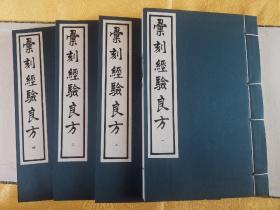 彙刻經驗良方 一
彙刻經驗良方 二
彙刻經驗良方 三
彙刻經驗良方 四